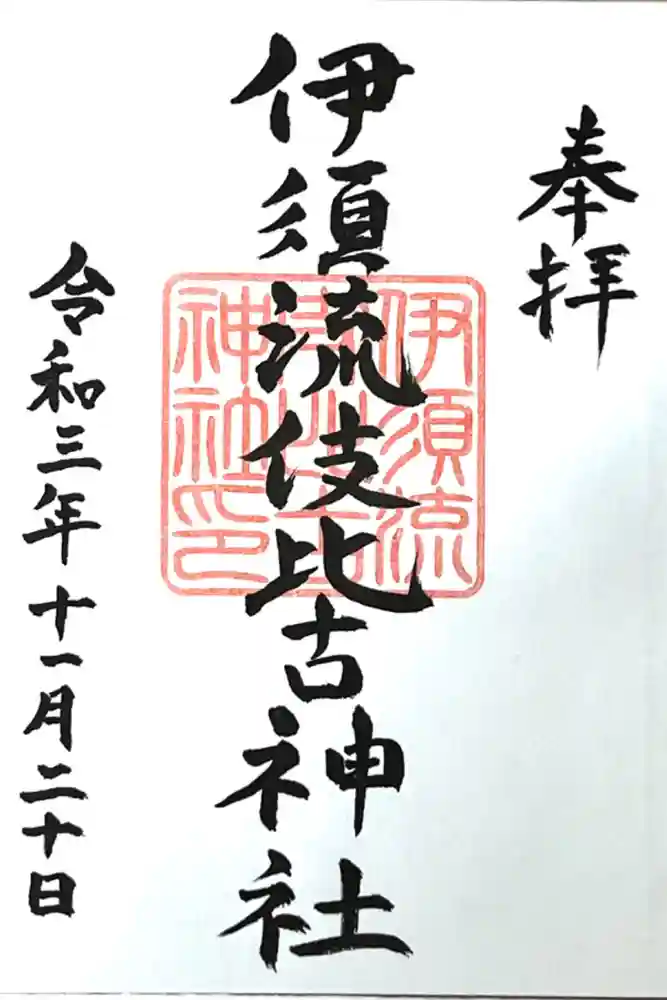 奉拝
伊須流伎比古神社
伊須流
神社印
令和三年十一月二十日